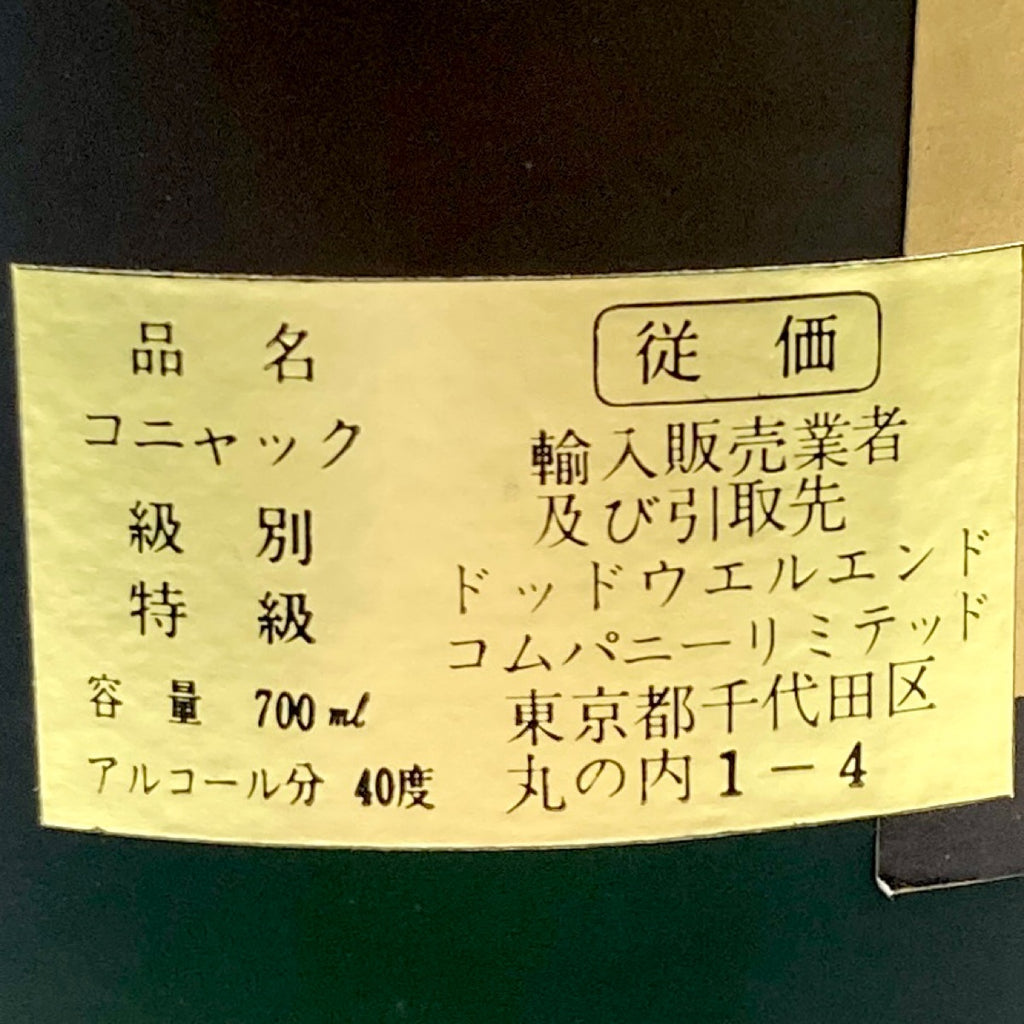 品名
コニャック
級別
特級
容量 700ml
アルコール分 40度
従価
輸入販売業者
及び引取先
ドッドウエルエンド
コムパニーリミテッド
東京都千代田区
丸の内1-4